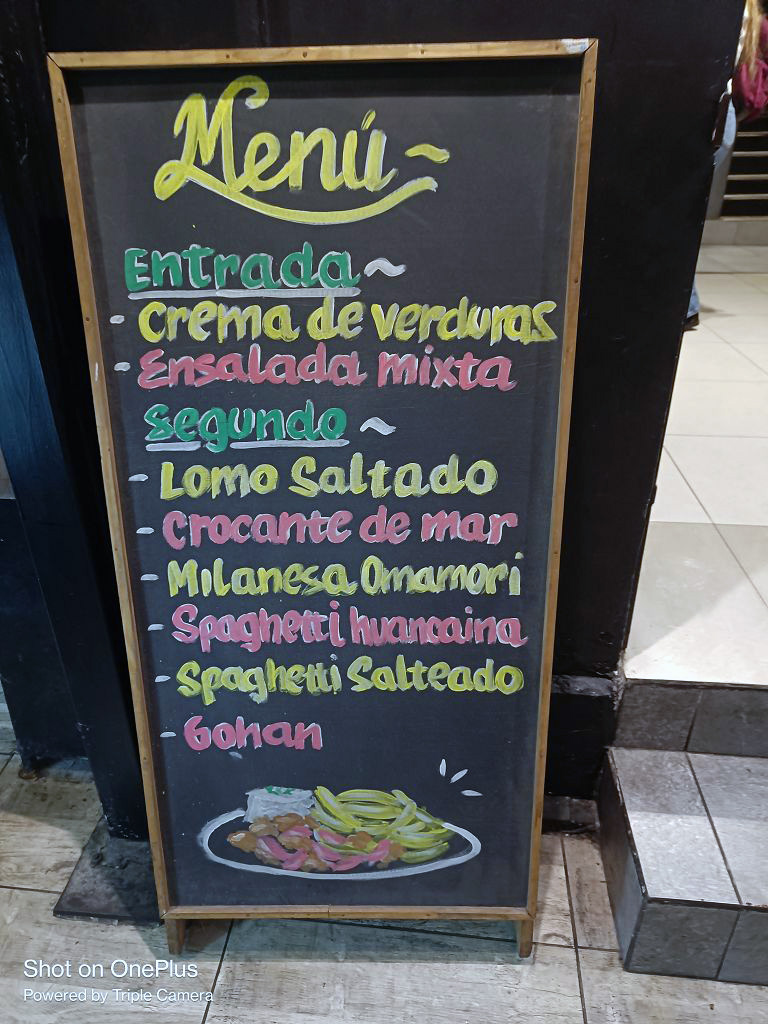 Menú ~
Entrada ~
- Crema de verduras
- Ensalada mixta
Segundo ~
- Lomo Saltado
- Crocante de mar
- Milanesa Omamori
- Spaghetti huancaina
- Spaghetti Salteado
- Gohan
Shot on OnePlus
Powered by Triple Camera